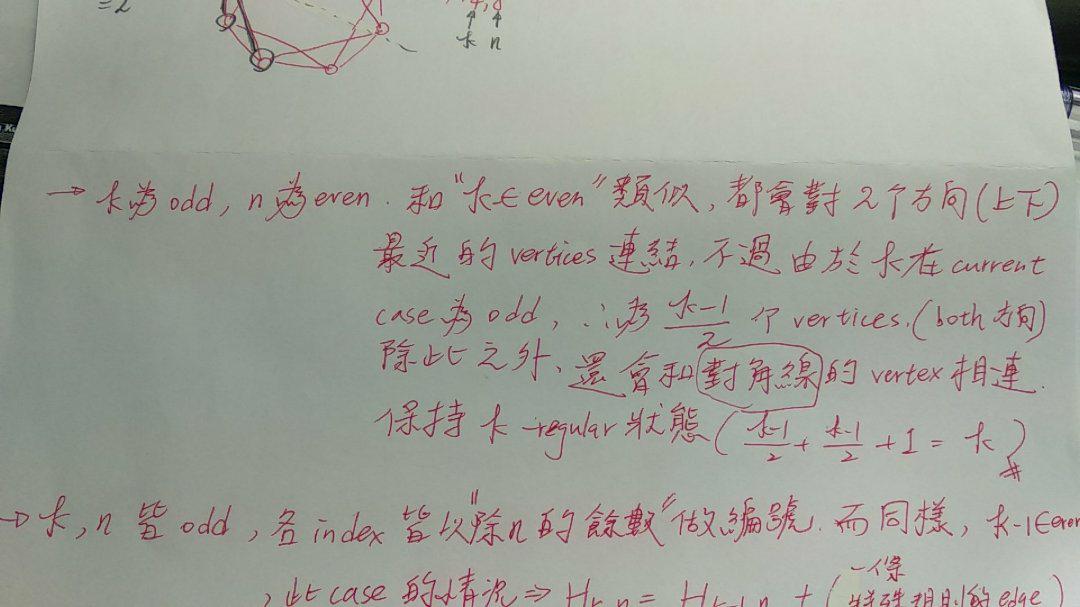 =2
k n
→ k為odd, n為even. 和"k∈even"類似, 都會對2个方向(上下)
最近的vertices連結, 不過由於k在current
case為odd, ∴為 (k-1)/2 个vertices. (both方向)
除此之外, 還會和對角線的vertex相連.
保持k-regular狀態 ( (k-1)/2 + (k-1)/2 + 1 = k ) #
→ k, n皆odd, 各index皆以"除n的餘數"做編號. 而同樣, k-1∈even
, 此case的情況⇒ Hk,n = Hk-1,n + (一條特殊規則的edge)